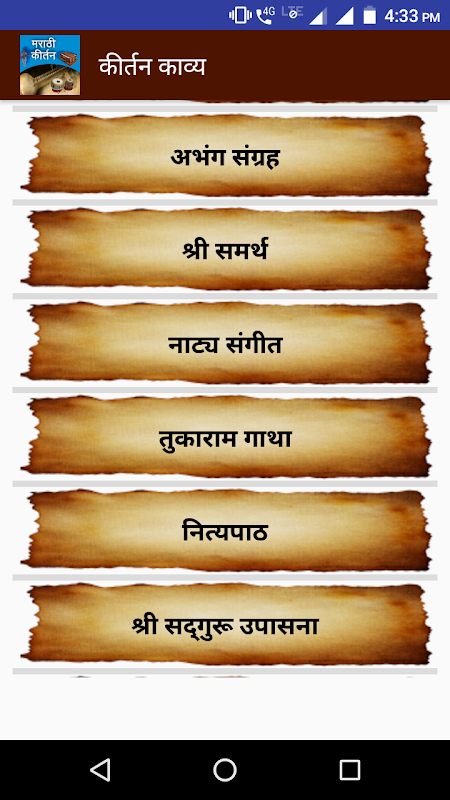 4G LTE 4:33 PM
मराठी
कीर्तन
कीर्तन काव्य
अभंग संग्रह
श्री समर्थ
नाट्य संगीत
तुकाराम गाथा
नित्यपाठ
श्री सद्‌गुरू उपासना